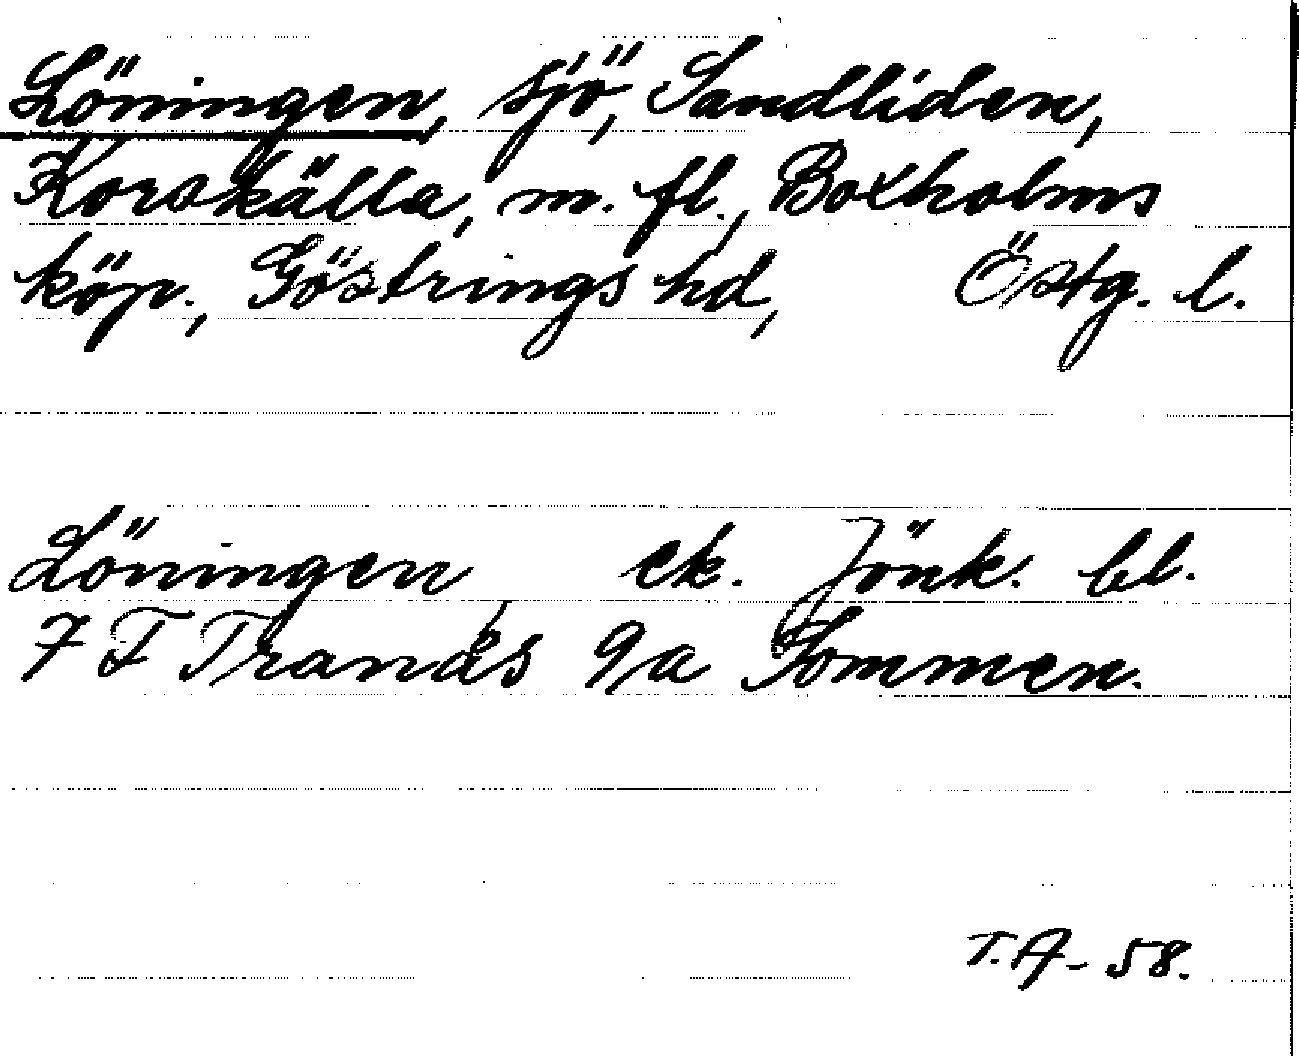 Löningen, sjö, Sandliden,
Korskälla, m. fl., Boxholms
köp., Göstrings hd, Östg. l.
Löningen ek. Jönk. bl.
7 F Tranås 9a Sommen.
T.A- 58.